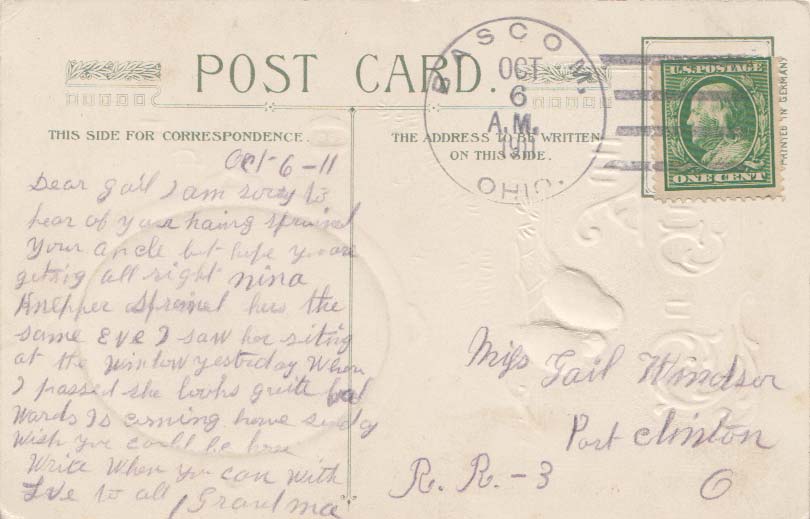 POST CARD.
BASCOM,
OCT
6
A.M.
1911
OHIO.
U.S. POSTAGE
ONE CENT
PRINTED IN GERMANY
THIS SIDE FOR CORRESPONDENCE.
THE ADDRESS TO BE WRITTEN
ON THIS SIDE.
Oct-6-11
Dear gail I am sorry to
hear of your haing sprained
Your ancle but hope you are
geting all right nina
Knepper sprainel hers the
same Eve I saw her siting
at the window yesterday When
I passed she looks quite bad
Wards Is coming home sunday
Wish you could be here
Write When you can With
Love to all Grandma
Miss Gail Windsor
Port Clinton
R. R. - 3 O